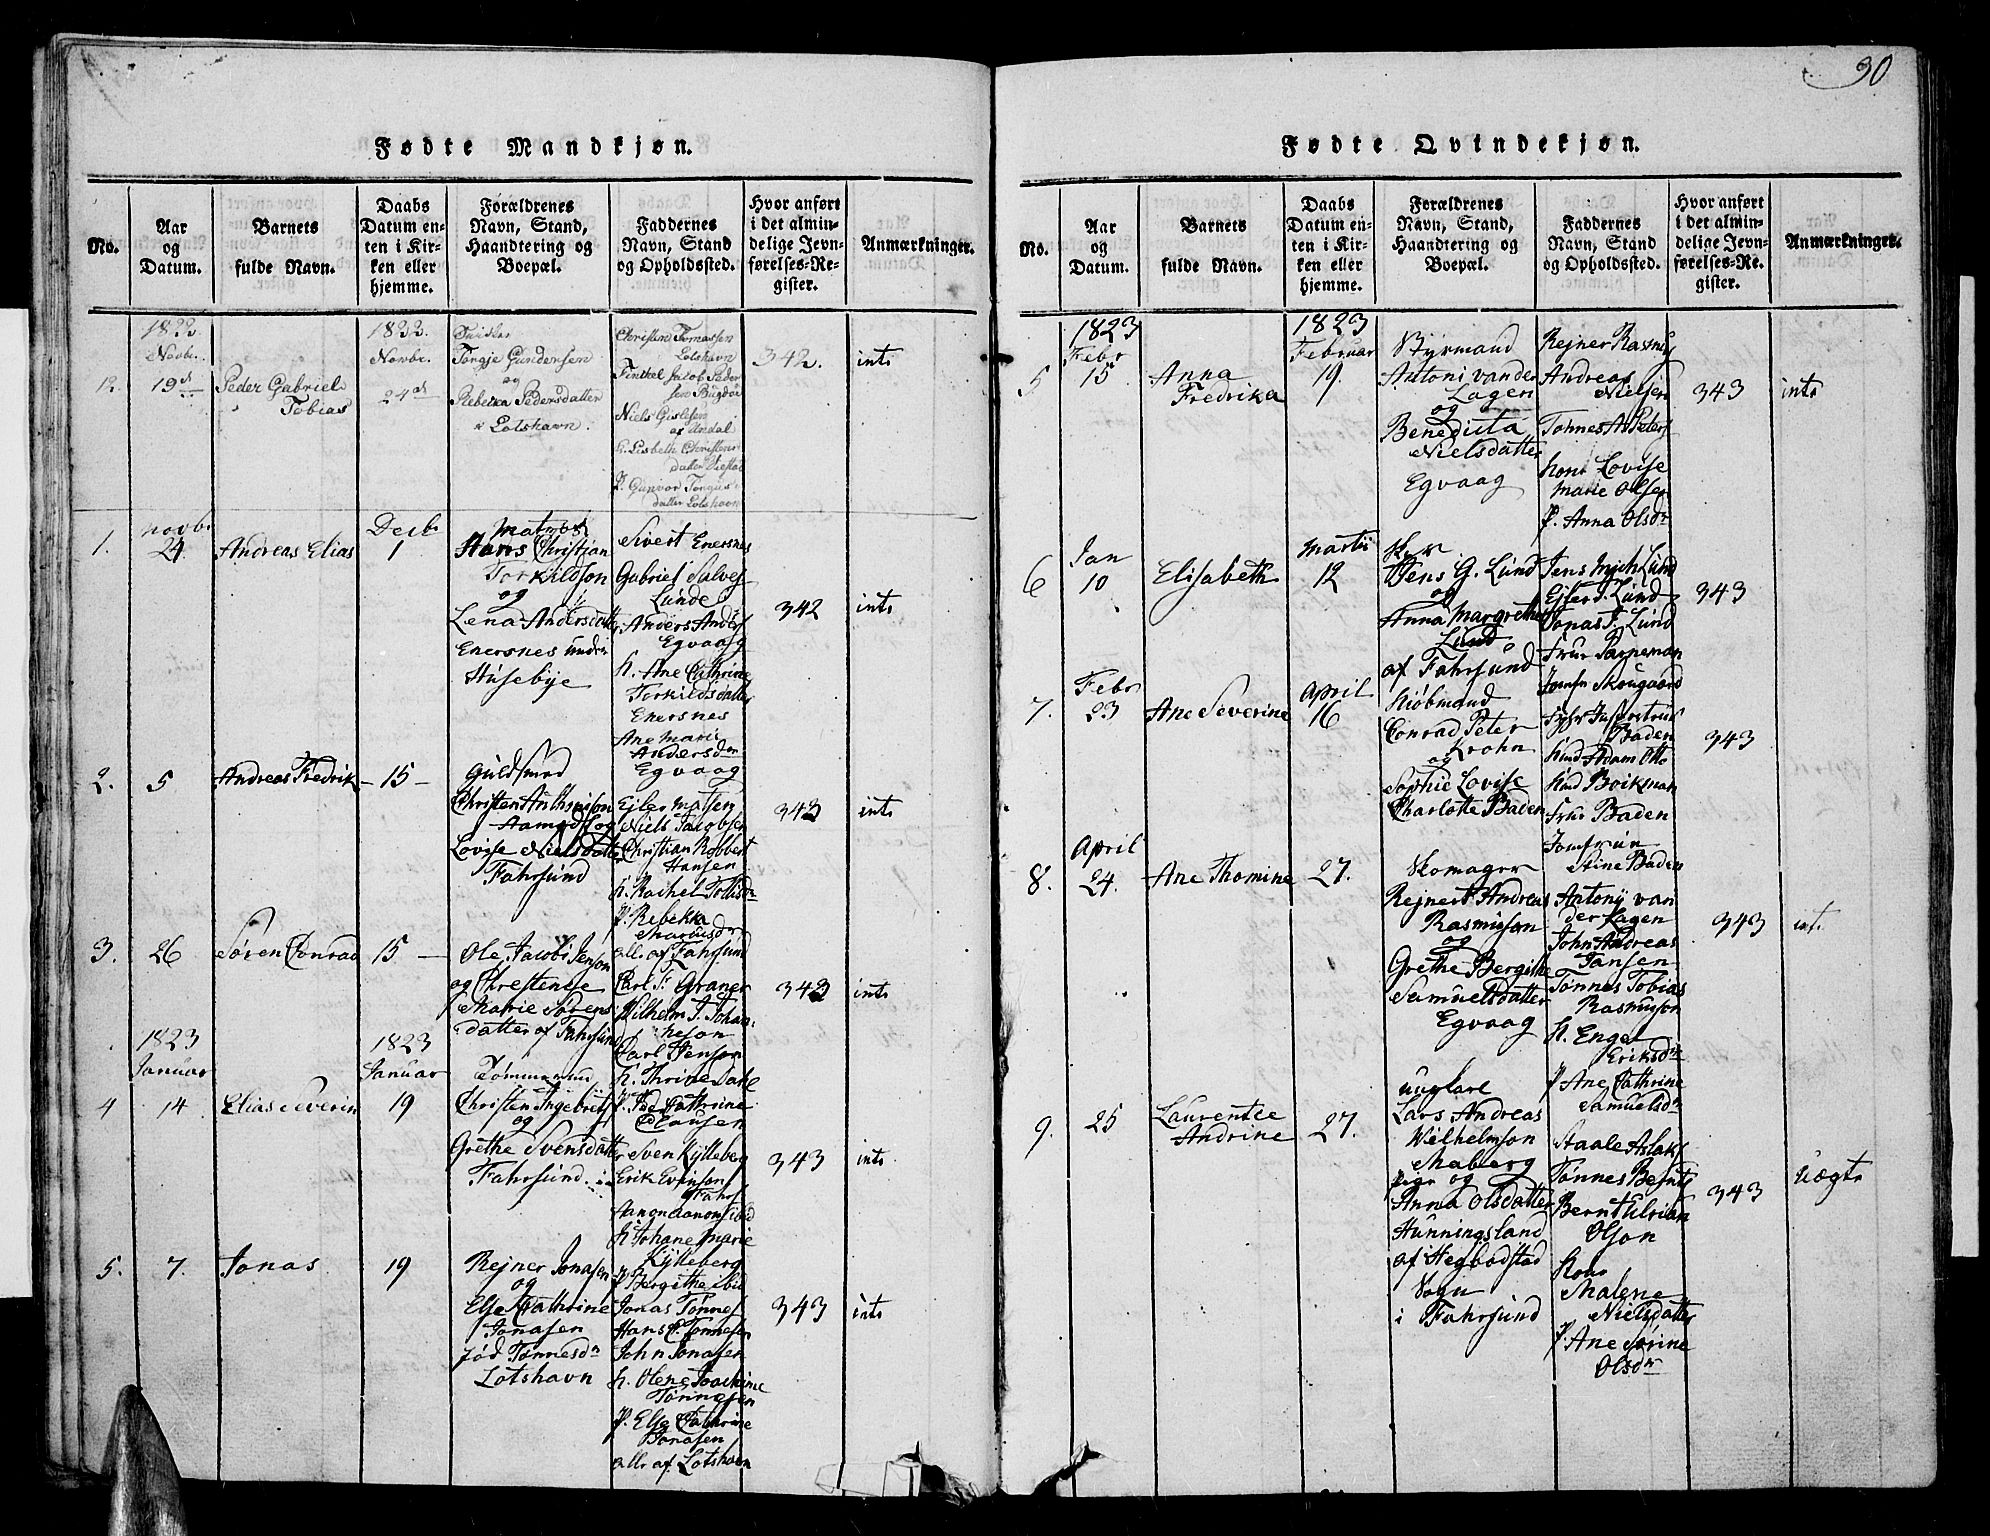 30
Fødte Mandkjøn.
No.
Aar
og
Datum.
Barnets
fulde Navn.
Daabs
Datum en-
ten i Kir-
ken eller
hjemme.
Forældrenes
Navn, Stand,
Haandtering og
Boepæl.
Faddernes
Navn, Stand
og Opholdssted.
Hvor anført
i det almin-
delige Jevn-
førelses-Re-
gister.
Anmærkninger.
12.
1822
Novbr.
19d
Peder Gabriel
Tobias
1822.
Novbr.
24d
Torgje Gundersen
og
Rebecca Pedersdatter
Lotshavn.
Christen Tomassen
Lotshavn
Finkel Jacob Peder
sen Bugdøe
Niels Gislesen
af Undal
k. Lisbeth Christens
datter
P. Gunvor Torgus
datter Lotshavn
342.
ints
1.
Novbr
24.
Andreas Elias
Decbr
1
Matros
Hans Christian
Torkildson
og
Lena Andersdatter
Enersnes under
Huseby
Sivert Enersnes
Gabriel Salves
Lunde
Anders Anders
Egvaag
k. Ane Cathrine
Torkildsdatter
Enersnes
Ane Marie
Andersdr
Egvaag
342
ints
2.
5
Andreas Fredrik
15
Guldsmed
Christen Anthonison
Aamodt og
Lovise Nielsdatter
Fahrsund
Ejler Matsen
Niels Jacobsen
Christian Robbert
Hansen
k. Rachel Tollisdr
P. Rebekka
Marcusdr
alle af Fahrsund
343
ints
3.
26
Søren Conrad
15
Ole Jacob Jenson
og Chrestense
Marie Sørens
datter af Fahrsund
Carl S. Graner
Wilhelm T. Johan
neson
Carl Jenson
k. Thrine Dahl
P. Cathrine
Clausen
343
ints
1823
Januar
4
14
Elias Severin
1823
Januar
19
Tømmermd
Christen Ingebrets
og
Grethe Svensdatter
Fahrsund
Sven Kylleberg
Erik Evinson
Fahrs
k. Johane Marie
Kylleberg
P. Bergithe ibid
343
ints
5.
7.
Jonas
19
Rejner Jonasen
og
Else Cathrine
Jonasen
fød Tønnesdr
Lotshavn
Jonas Tønnes
Hans C. Tønnesen
John Jonasen
k. Olene Joachime
Tønnesen
P. Else Cathrine
Jonasen
alle af Lotshavn
343
ints
Fødte Qvindekjøn.
No.
Aar
og
Datum.
Barnets
fulde Navn.
Daabs
Datum en-
ten i Kir-
ken eller
hjemme.
Forældrenes
Navn, Stand,
Haandtering og
Boepæl.
Faddernes
Navn, Stand
og Opholdssted.
Hvor anført
i det almin-
delige Jevn-
førelses-Re-
gister.
Anmærkninger.
5
1823
Febr
15
Anna
Fredrika
1823
Februar
19.
Styrmand
Antoni vander
Lagen
og
Benedicta
Nielsdatter
Egvaag
Rejner Rasmus
Andreas
Nielsen
Tønnes A. Peters
kone Lovise
Marie Olsen
P. Anna Olsdr
343
ints
6
Jan
10
Elisabeth
Martii
12
Jens G. Lund
og
Anna Margrethe
Lund
af Fahrsund
Jens Mich Lund
Ejlert Lund
Jonas T. Lund
Frue
Jomfr Skougaard
343
7.
Febr
23
Ane Severine
April
16
Kiøbmand
Conrad Peter
Krohn
og
Sophie Lovise
Charlotte Baden
Baden
Adam Otto
Boikman
Frue Baden
Jomfrue
Stine Baden
343
8.
April
24.
Ane Thomine
27.
Skomager
Rejnert Andreas
Rasmuson
og
Grethe Bergithe
Samuelsdatter
Egvaag
Antonij van
der Lagen
John Andreas
Jansen
Tønnes Tobias
Rasmuson
k. Engel
Eriksdr
P. Ane Cathrine
Samuelsdr
343
ints
9.
25
Laurentze
Andrine
27.
ungkarl
Lars Andreas
Wilhelmson
Maberg
Pige og
Anna Olsdatter
Hunningsland
af Hegbodstad
Sogn
i Fahrsund
Staale Aslaks
Tønnes Bernts
Bernt Ulrian
Olson
Kone
Malene
Nielsdatter
P. Ane Sørine
Olsdr
343
Uægte